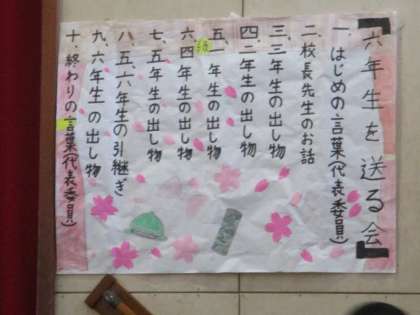 【六年生を送る会】
一、はじめの言葉(代表委員)
二、校長先生のお話
三、三年生の出し物
四、二年生の出し物
五、一年生の出し物
六、四年生の出し物
七、五年生の出し物
八、五、六年生の引継ぎ
九、六年生の出し物
十、終わりの言葉(代表委員)